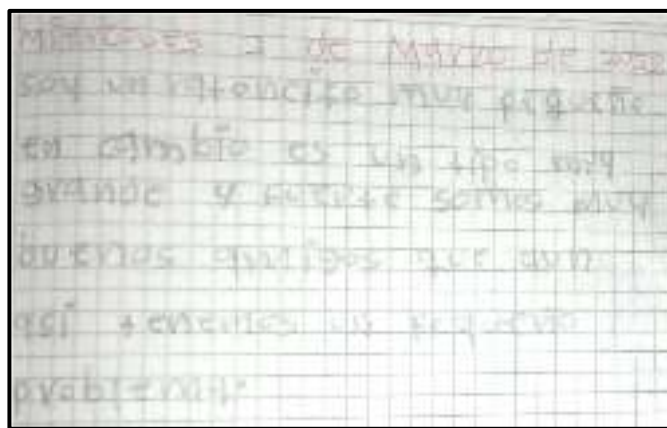 Miercoles 2 de Marzo de
soy un ratoncito muy pequeño
en cambio es un tipo muy
grande y fuerte somos muy
buenos amigos que aun
asi tenemos un pequeño
problemita